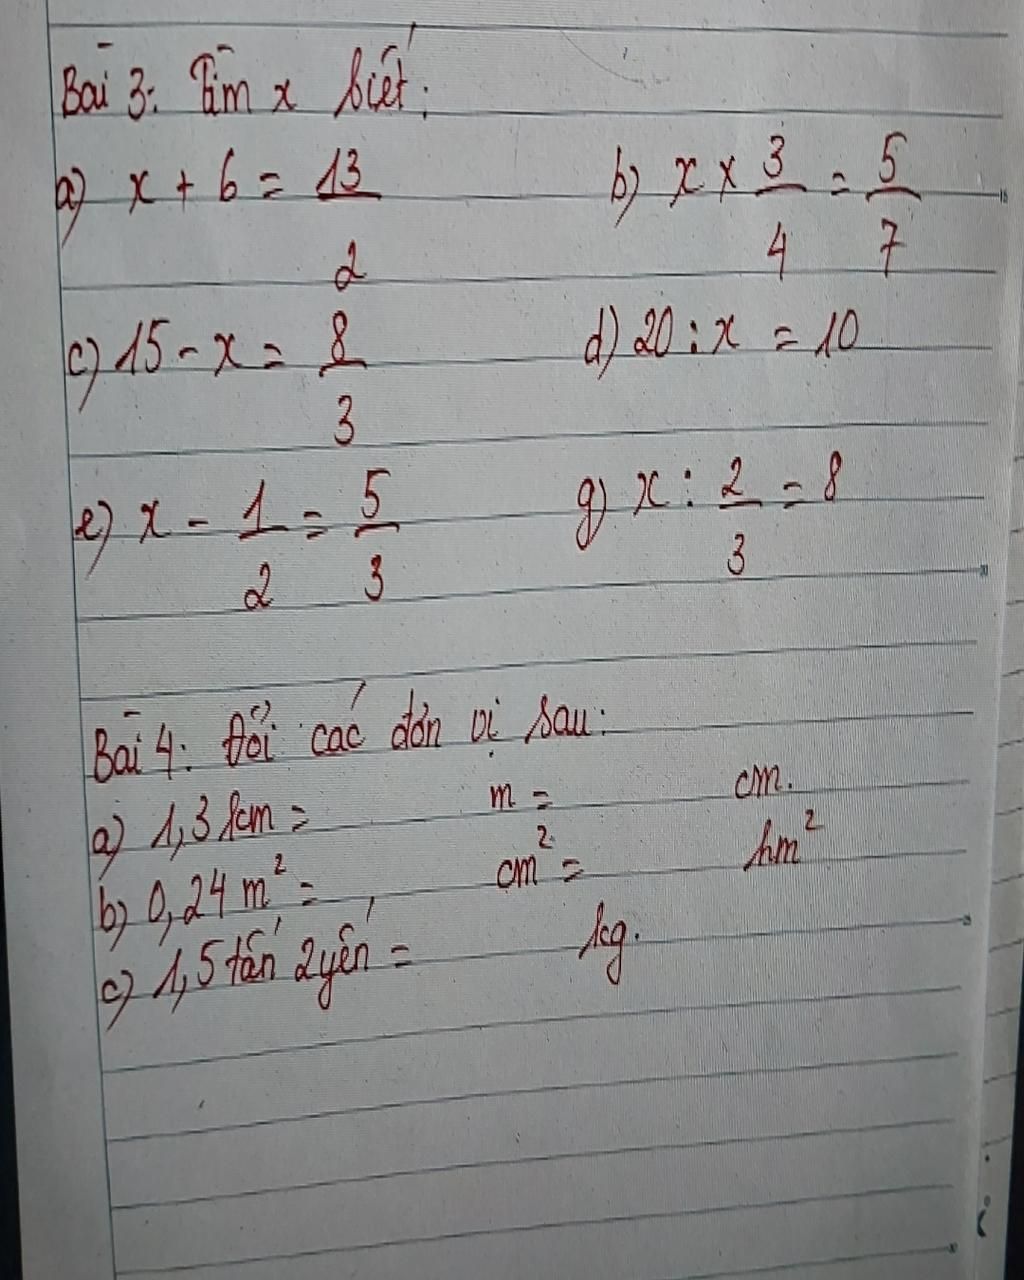 Bài 3: Tìm x biết:
a) x + 6 = 13/2 b) x × 3/4 = 5/7
c) 15 - x = 8/3 d) 20 : x = 10
e) x - 1/2 = 5/3 g) x : 2/3 = 8
Bài 4: Đổi các đơn vị sau:
a) 1,3 km = m = cm.
b) 0,24 m² = cm² = hm²
c) 1,5 tấn 2 yến = kg.